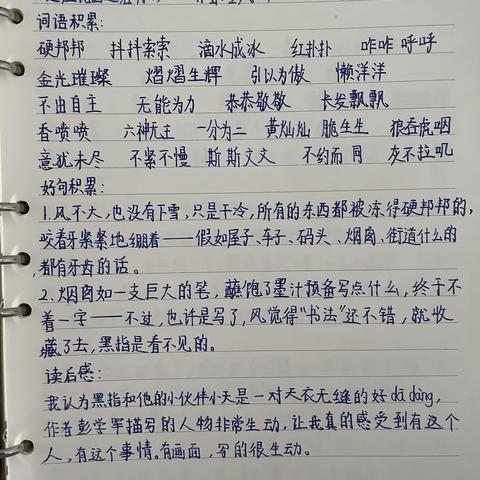 词语积累:
硬邦邦 抖抖索索 滴水成冰 红扑扑 咋咋呼呼
金光璀璨 熠熠生辉 引以为傲 懒洋洋
不由自主 无能为力 恭恭敬敬 长发飘飘
香喷喷 六神无主 一分为二 黄灿灿 脆生生 狼吞虎咽
意犹未尽 不紧不慢 斯斯文文 不约而同 灰不拉叽
好句积累:
1.风不大,也没有下雪,只是干冷,所有的东西都被冻得硬邦邦的,
咬着牙紧紧地绷着——假如屋子、车子、码头、烟囱、街道什么的
都有牙齿的话。
2.烟囱如一支巨大的笔,蘸饱了墨汁预备写点什么,终于不
着一字——不过,也许是写了,风觉得“书法”还不错,就收
藏了去,黑指是看不见的。
读后感:
我认为黑指和他的小伙伴小天是一对天衣无缝的好dā dàng,
作者彭学军描写的人物非常生动,让我真的感受到有这个
人,有这个事情。有画面,写的很生动。